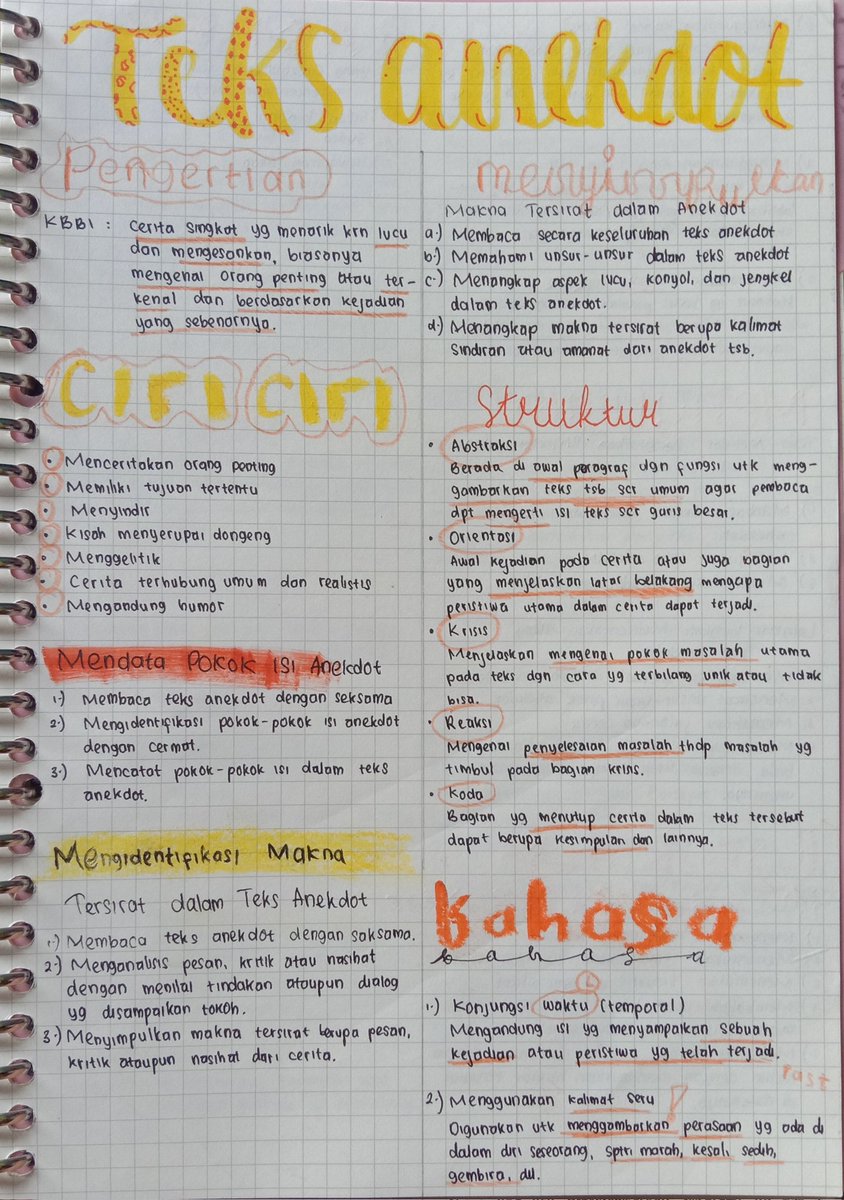 Teks anekdot
Pengertian
KBBI : cerita singkat yg menarik krn lucu
dan mengesankan, biasanya
mengenai orang penting atau ter-
kenal dan berdasarkan kejadian
yang sebenarnya.
Ciri Ciri
• Menceritakan orang penting
• Memiliki tujuan tertentu
• Menyindir
• Kisah menyerupai dongeng
• Menggelitik
• Cerita terhubung umum dan realistis
• Mengandung humor
Mendata Pokok isi Anekdot
1.) Membaca teks anekdot dengan seksama
2.) Mengidentifikasi pokok-pokok isi anekdot
dengan cermat.
3.) Mencatat pokok-pokok isi dalam teks
anekdot.
Mengidentifikasi Makna
Tersirat dalam Teks Anekdot
1.) Membaca teks anekdot dengan saksama.
2.) Menganalisis pesan, kritik atau nasihat
dengan menilai tindakan ataupun dialog
yg disampaikan tokoh.
3.) Menyimpulkan makna tersirat berupa pesan,
kritik ataupun nasihat dari cerita.
Makna Tersirat dalam Anekdot
a.) Membaca secara keseluruhan teks anekdot
b.) Memahami unsur-unsur dalam teks anekdot
c.) Menangkap aspek lucu, konyol, dan jengkel
dalam teks anekdot.
d.) Menangkap makna tersirat berupa kalimat
sindiran atau amanat dari anekdot tsb.
Struktur
• Abstraksi
Berada di awal paragraf dgn fungsi utk meng-
gambarkan teks tsb scr umum agar pembaca
dpt mengerti isi teks scr garis besar.
• Orientasi
Awal kejadian pada cerita atau juga bagian
yang menjelaskan latar belakang mengapa
peristiwa utama dalam cerita dapat terjadi.
• Krisis
Menjelaskan mengenai pokok masalah utama
pada teks dgn cara yg terbilang unik atau tidak
bisa.
• Reaksi
Mengenai penyelesaian masalah thdp masalah yg
timbul pada bagian krisis.
• Koda
Bagian yg menutup cerita dalam teks tersebut
dapat berupa kesimpulan dan lainnya.
bahasa
bahasa
1.) Konjungsi waktu (temporal)
Mengandung isi yg menyampaikan sebuah
kejadian atau peristiwa yg telah terjadi.
Past
2.) Menggunakan kalimat seru !
Digunakan utk menggambarkan perasaan yg ada di
dalam diri seseorang, sptri marah, kesal, sedih,
gembira, dll.